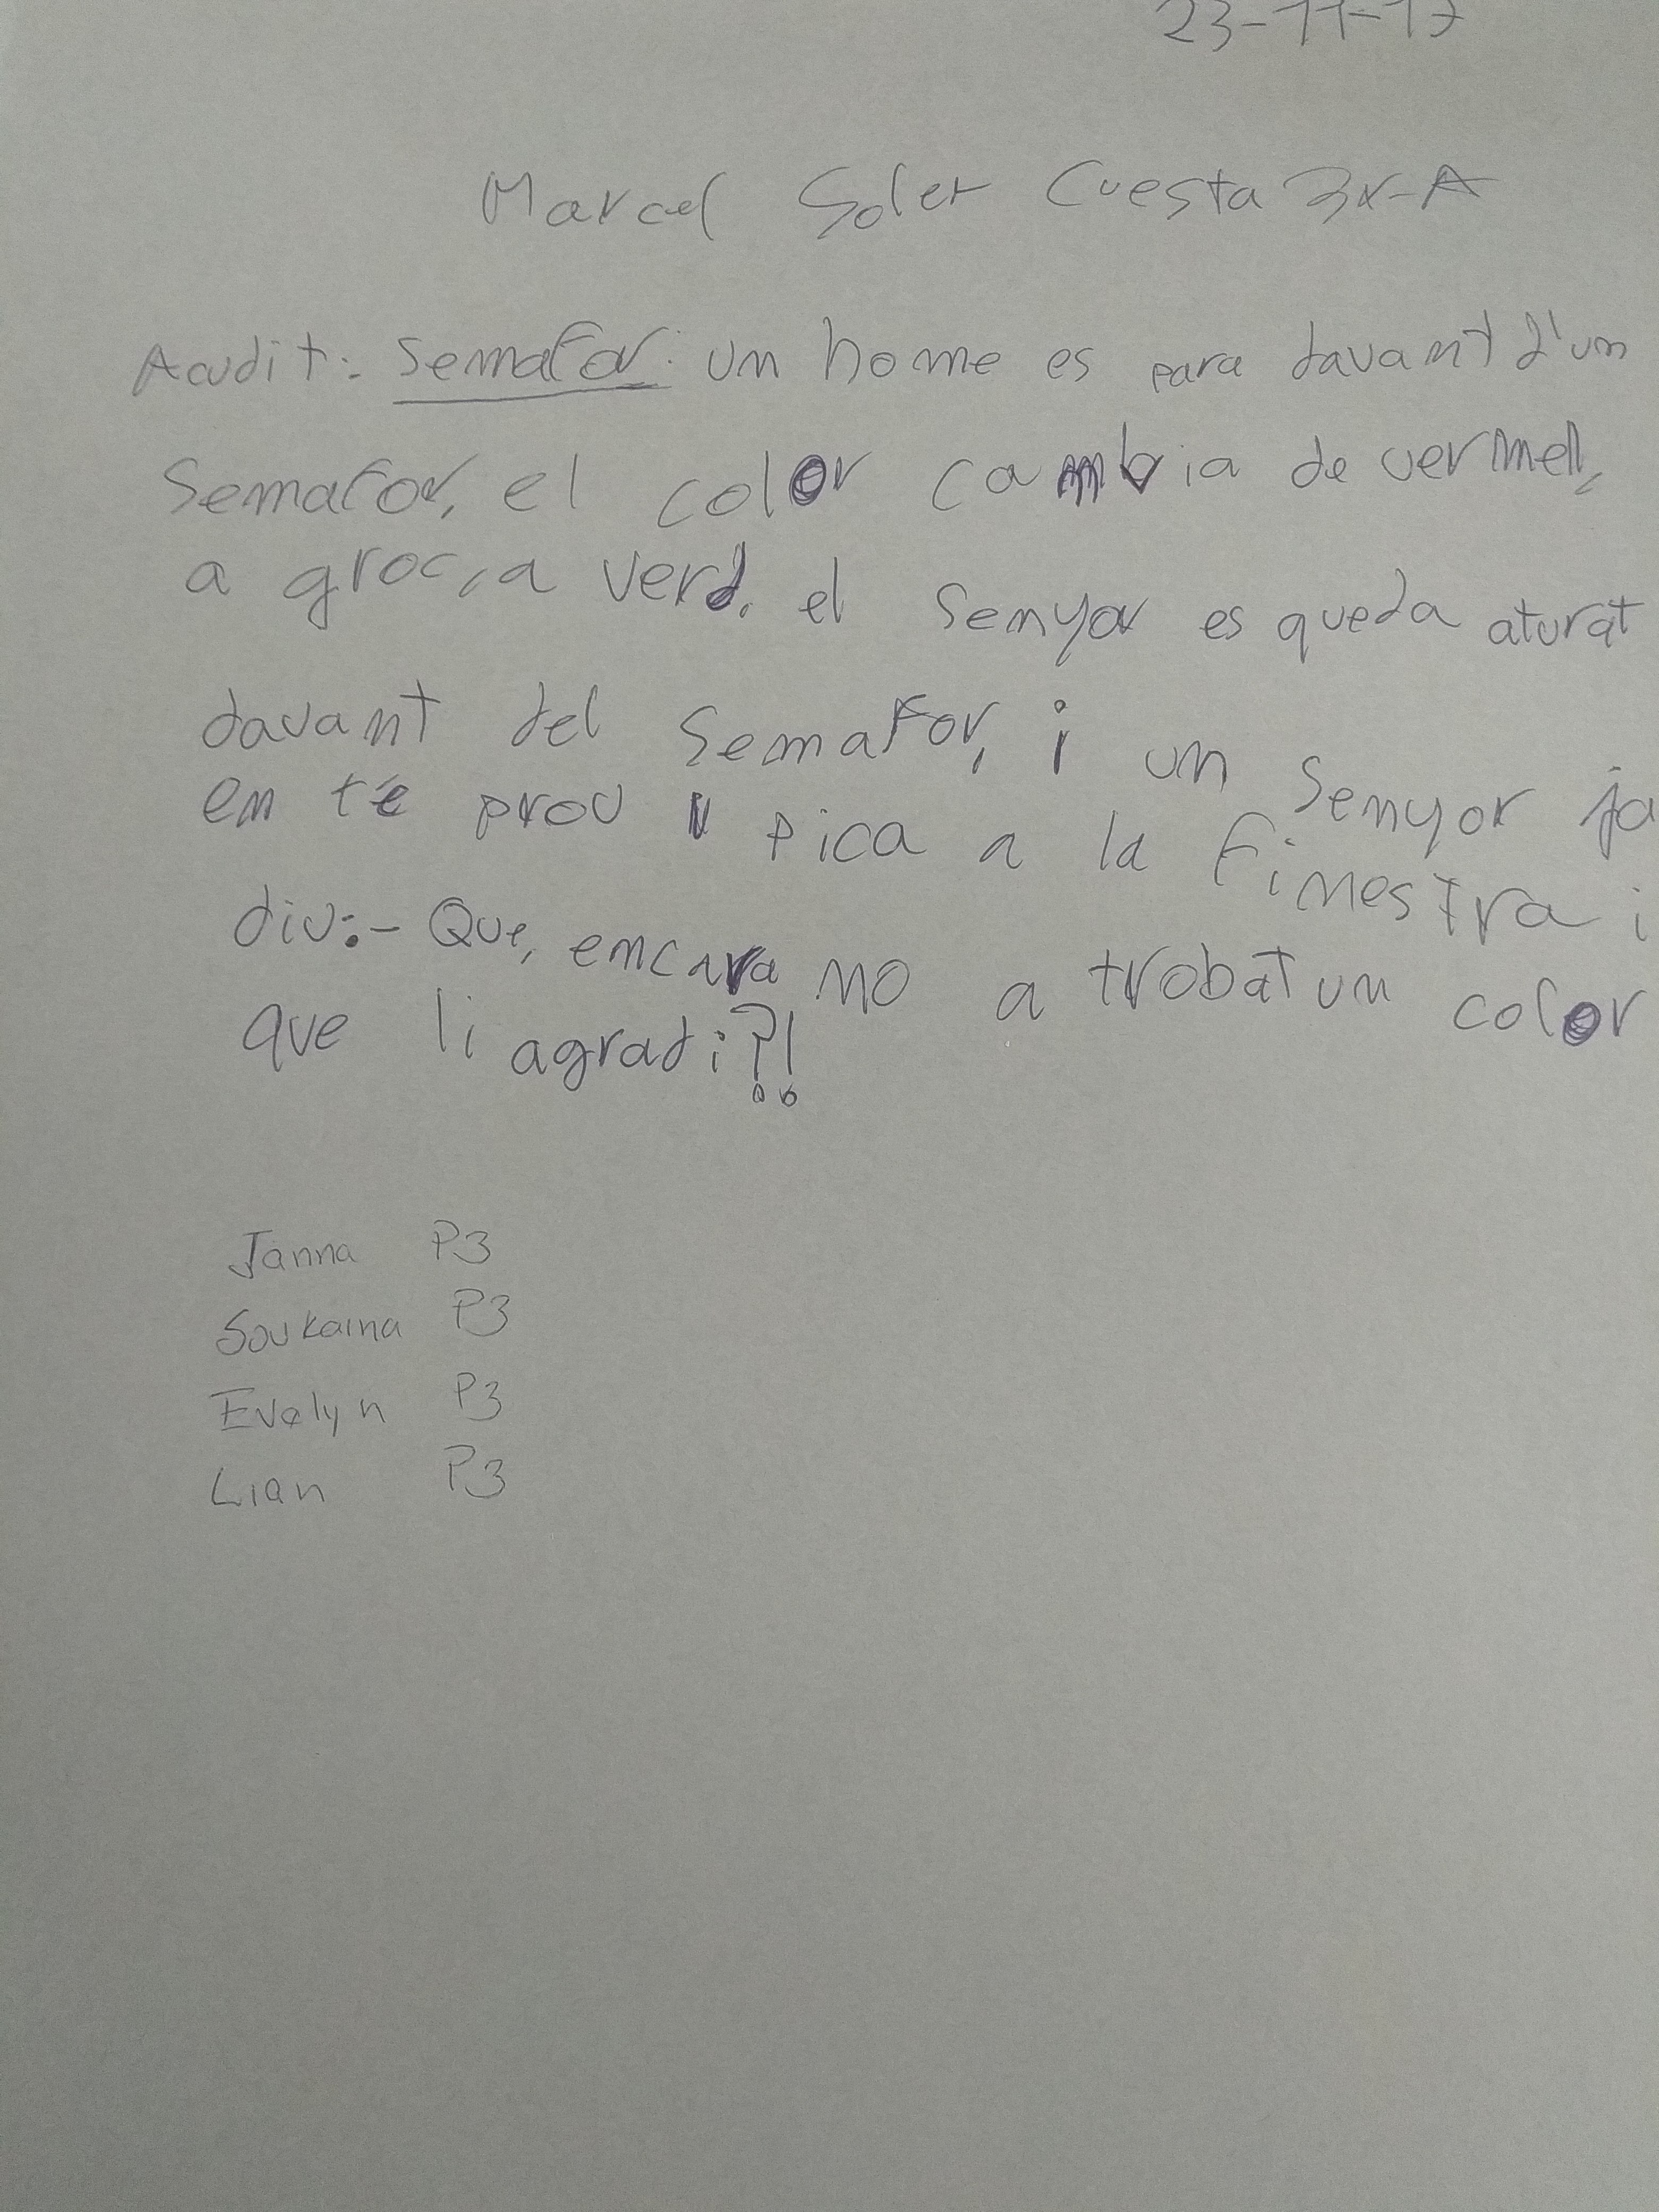 23-11-17
Marcel Soler Cuesta 3r-A
Acudit: Semafor: un home es para davant d'un
Semafor, el color cambia de vermell,
a groc, a verd. el Senyor es queda aturat
davant del Semafor, i un Senyor ja
en té prou i pica a la finestra i
diu:- Que, encara no a trobat un color
que li agradi?!
Janna P3
Soukaina P3
Evelyn P3
Lian P3